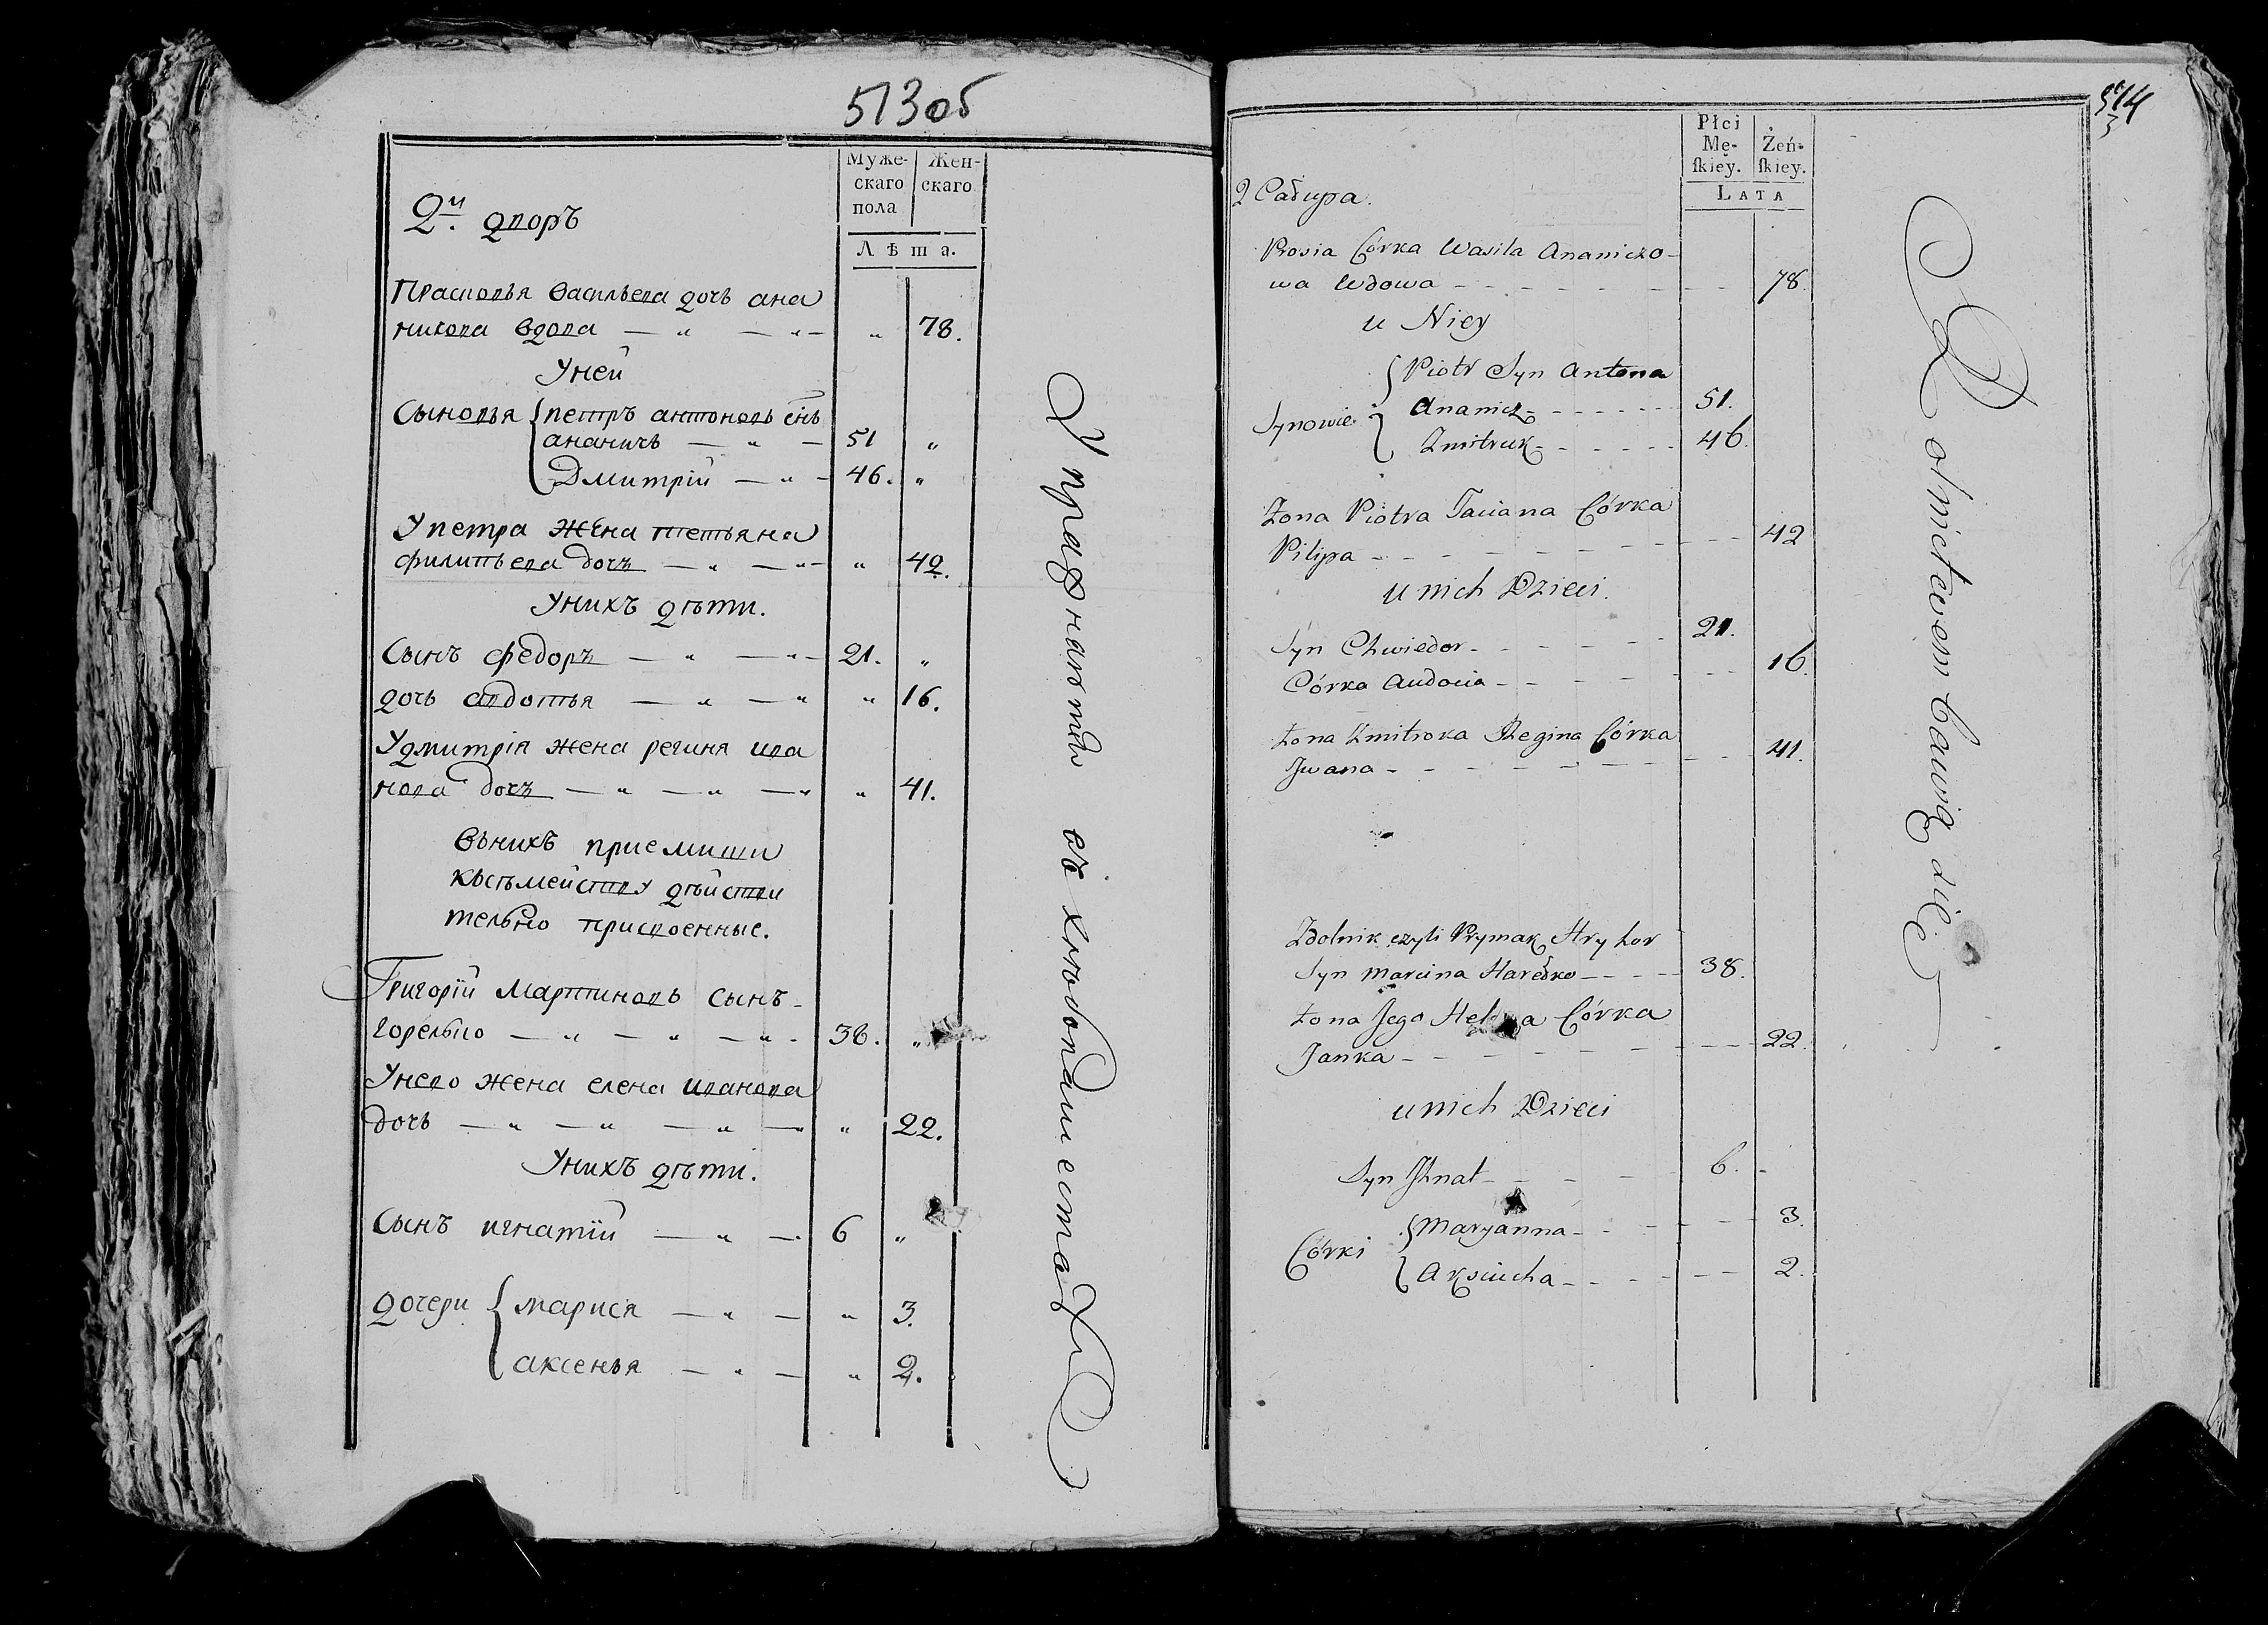 513об
Муже-
скаго
пола
Жен-
скаго
Лѣта.
2й дворъ
Прасковья васильева дочь ана
никова вдова — " — " — " 78.
Уней
Сыновья { петръ антоновъ снъ
ананичъ — " — 51 "
Дмитрій — " — 46. "
Упетра жена тетьяна
филипьева дочь — " — " — " 42.
Унихъ дѣти.
Сынъ федоръ — " — " — 21. "
дочь авдотья — " — " " 16.
Удмитрія жена регина ива
нова дочь — " — " — " " 41.
вънихъ приемыши
късѣмейству дѣйстви
тельно присвоенные.
Григорій Мартиновъ сынъ
горелько — " — " — " - 38. "
Унево жена елена иванова
дочь — " — " — " — " 22.
Унихъ дѣти.
Сынъ игнатій — " — 6 "
дочери { марися — " — " 3.
аксенья — " — " 2.
Упражнаютъ въ хлѣбопашествѣ
514
Płci
Mę-
ſkiey.
Żeń-
ſkiey.
LATA
2 Сабира.
Prosia Córka Wasila Ananiczo-
wa Wdowa - - - - - - - 78.
u Niey
Synowie { Piotr Syn Antona
Ananicz - - - - - - 51.
Zmitruk - - - - - 46.
Żona Piotra Taciana Córka
Pilipa - - - - - - - - - 42
u nich Dzieci.
Syn Chwiedor - - - - - 21.
Córka Audocia - - - - - - - 16.
Żona Zmitroka Regina Córka
Jwana - - - - - - - - 41.
Zdolnik czyli Prymak Hryhor
Syn Marcina Harełko - - - - 38.
Żona Jego Helena Córka
Janka - - - - - - - - - 22.
u nich Dzieci
Syn Jhnat - - - - 6. -
Córki { Maryanna - - - - - 3.
Aksiucha - - - - - - 2.
Rolnictwem bawią się